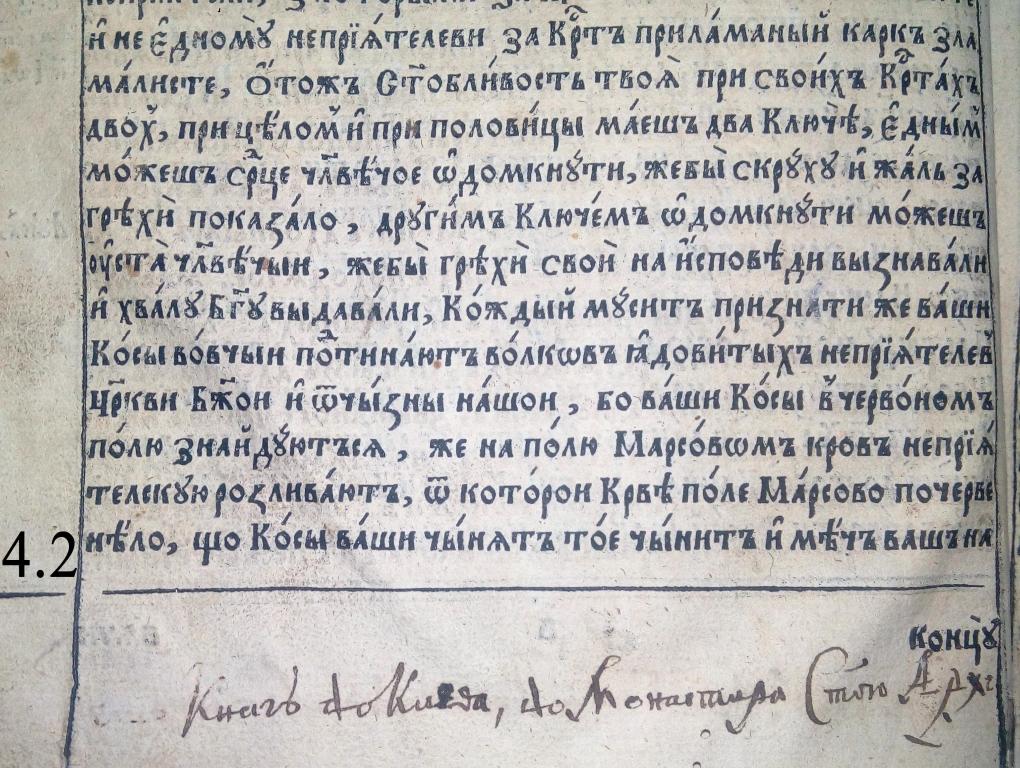 и҆ не є҆дному̀ непрїѧ́телеви за Крⷭ҇тъ прила́маный каркъ зла
ма́листе, Ѻ҆тожъ Стобли́вость твоѧ̀ при свои́хъ Крⷭ҇та́хъ
двох̾, при цѣ́лом̾ и҆ при полови́цы ма́ешъ два Ключѣ̀, є҆дны́м
мо́жешъ срⷣце члвѣ́чое ѿдомкну́ти, жебы̀ скру́ху и҆ жа́ль за
грѣхѝ показа́ло, други́мъ Ключе́мъ ѿдомкну́ти мо́жешъ
ѹ҆ста̀ члвѣ́чыи, жебы̀ грѣ́хѝ своѝ на и҆́сповѣди вызнава́ли
и҆ хва́лу Бг҃у выдава́ли, Ко́ждый му́ситъ призна́ти же ва́ши
Ко́сы во́вчыи поⷣтина́ютъ во́лковъ ꙗ҆дови́тыхъ непрїѧ́телей
Цр҃кви Бж҃ои и҆ ѿчы́зны на́шои, бо ва́ши Ко́сы в̾ черво́номъ
по́лю знайду́ютъсѧ, же на по́лю Марсо́вѡмъ кровъ непрїѧ́
телскую розлива́ютъ, ѿ кото́рои Крвѣ̀ по́ле Ма́рсово почерве
нѣ́ло, що Ко́сы ва́ши чы́нѧтъ то́е чы́нитъ и҆ мѣ́чъ вашъ на
4.2
концу̀
Книгъ до Киева, до Монастира Стого Арх